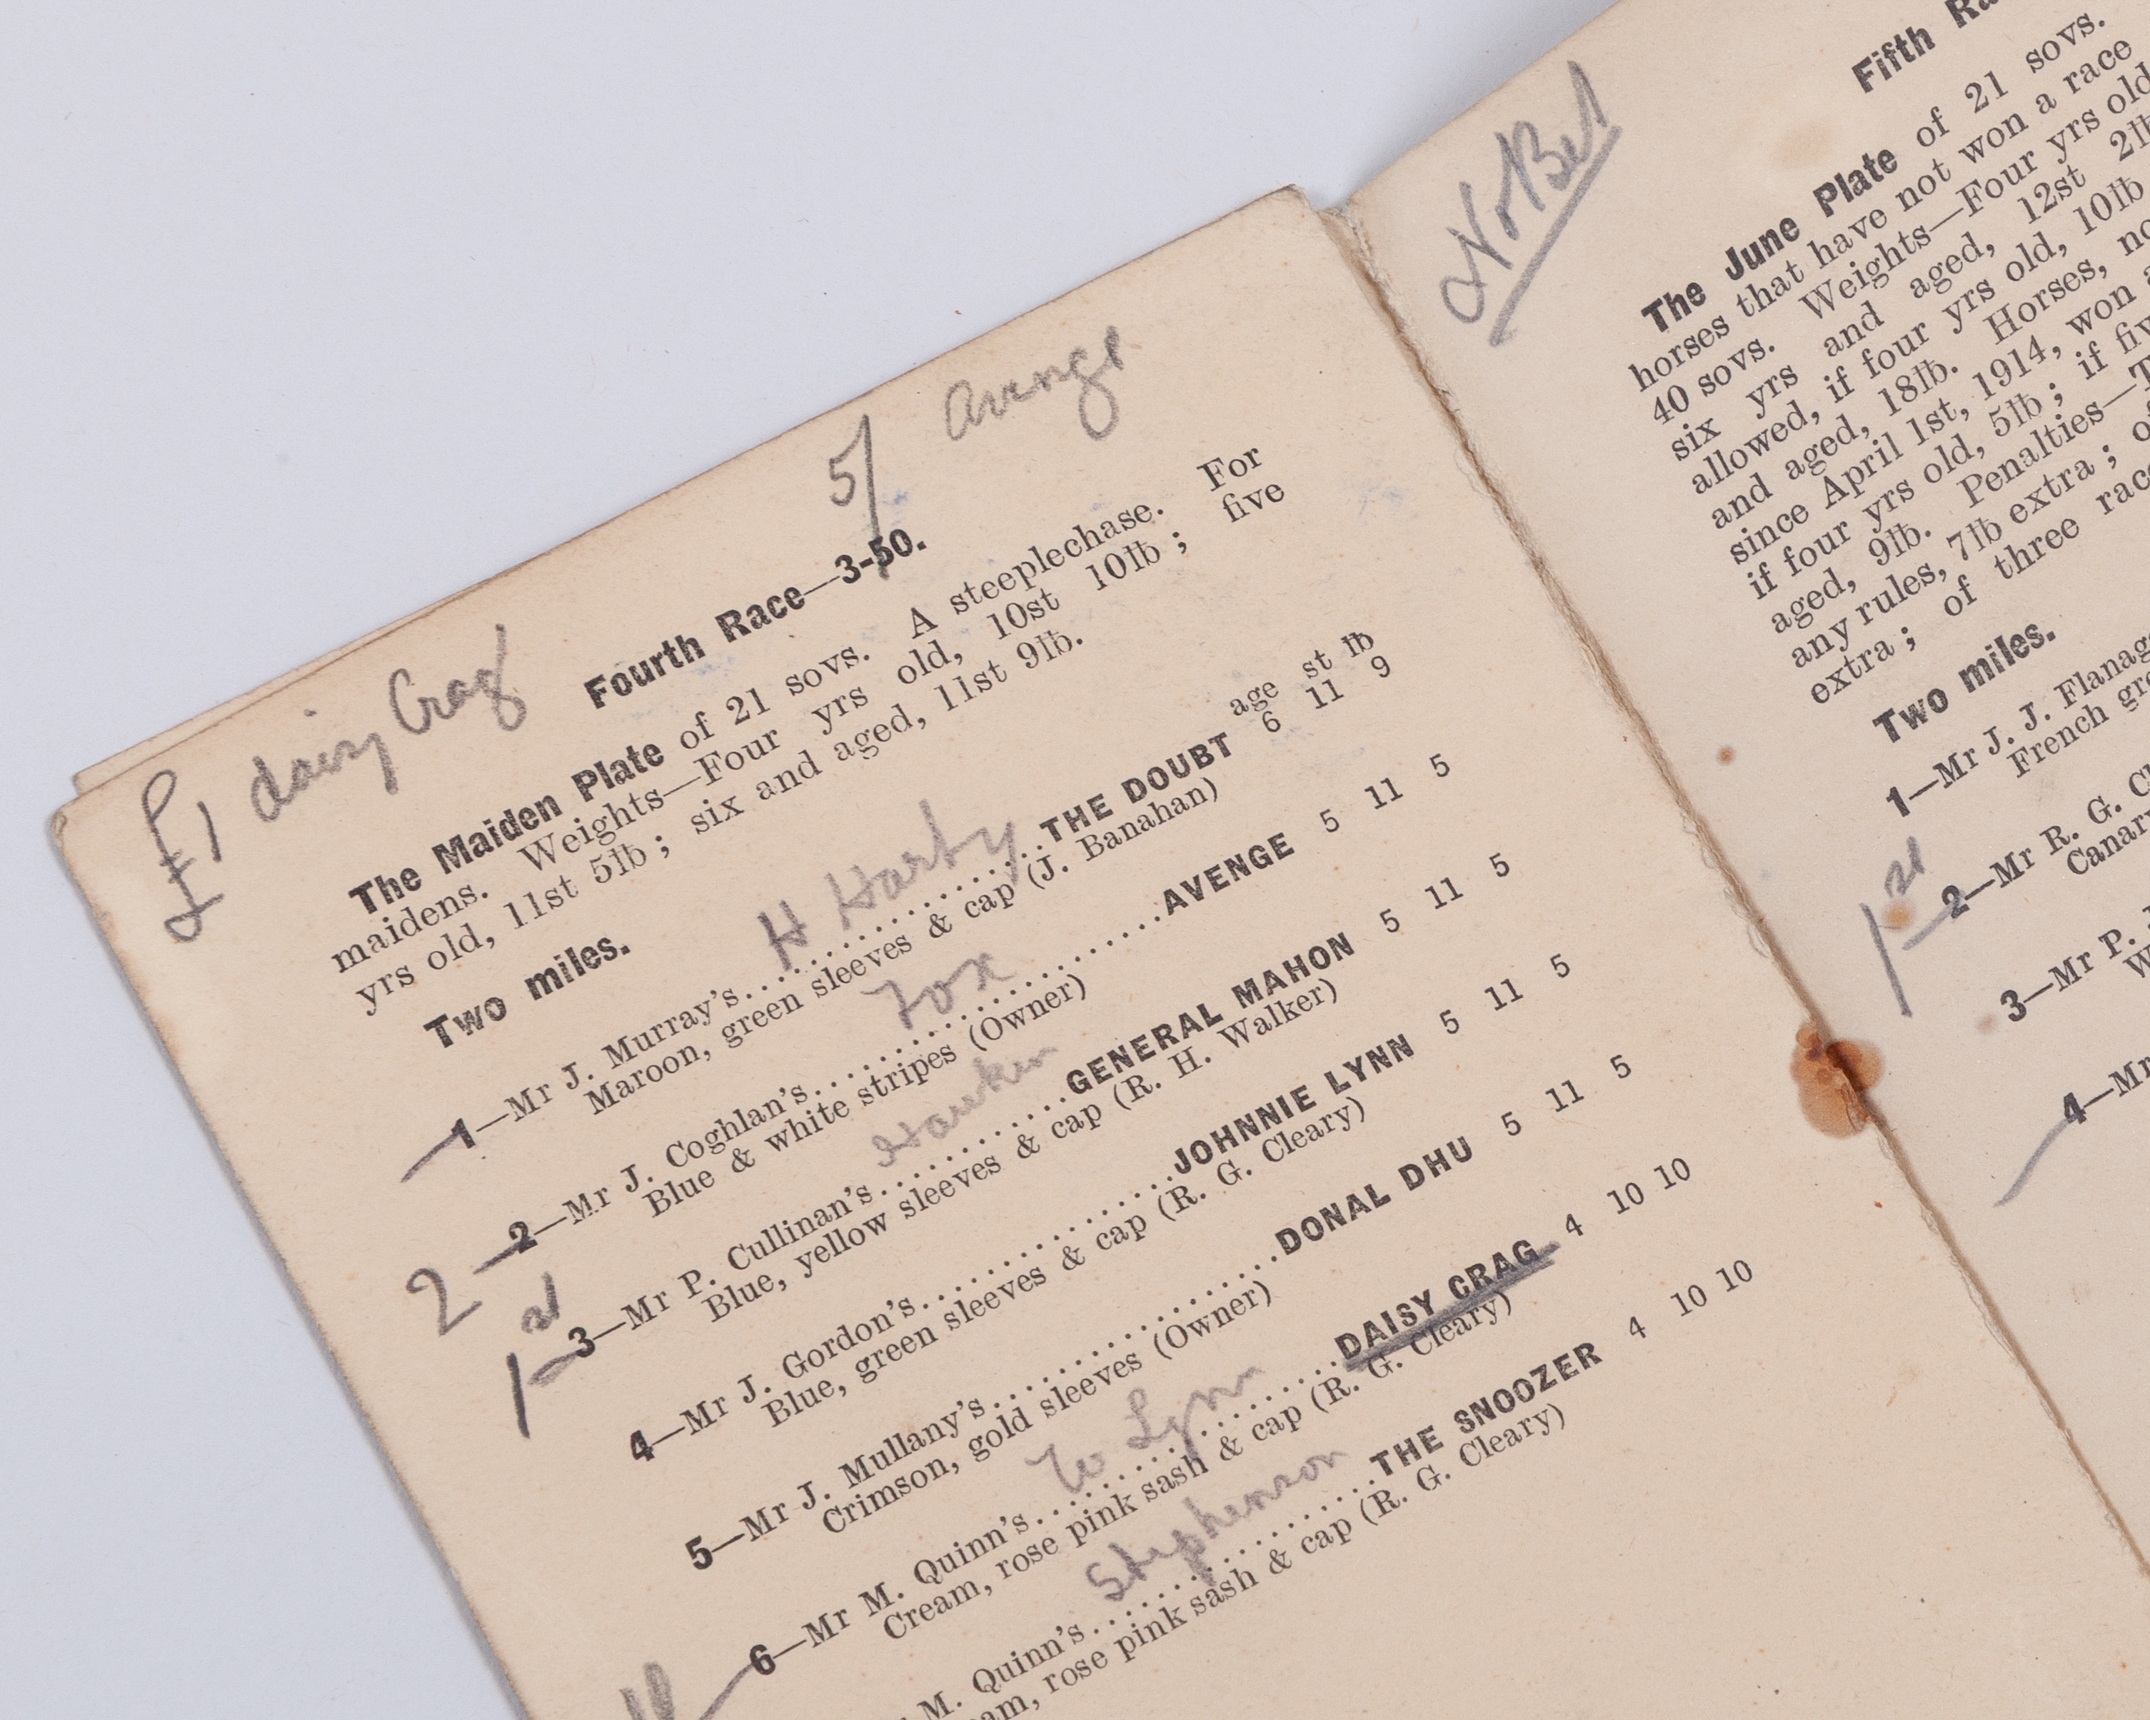 £1 daisy Crag
5/ Avenge
Fourth Race—3-50.
The Maiden Plate of 21 sovs. A steeplechase. For
maidens. Weights—Four yrs old, 10st 10lb; five
yrs old, 11st 5lb; six and aged, 11st 9lb.
Two miles.
age st lb
H Harty
1—Mr J. Murray's..........THE DOUBT 6 11 9
Maroon, green sleeves & cap (J. Banahan)
Fox
2—Mr J. Coghlan's..........AVENGE 5 11 5
Blue & white stripes (Owner)
2
Hawker
3—Mr P. Cullinan's..........GENERAL MAHON 5 11 5
Blue, yellow sleeves & cap (R. H. Walker)
1st
4—Mr J. Gordon's..........JOHNNIE LYNN 5 11 5
Blue, green sleeves & cap (R. G. Cleary)
5—Mr J. Mullany's..........DONAL DHU 5 11 5
Crimson, gold sleeves (Owner)
W Lynn
6—Mr M. Quinn's..........DAISY CRAG 4 10 10
Cream, rose pink sash & cap (R. G. Cleary)
Stephenson
M. Quinn's..........THE SNOOZER 4 10 10
rose pink sash & cap (R. G. Cleary)
No Bet
Fifth
The June Plate of 21 sovs.
horses that have not won a race
40 sovs. Weights—Four yrs old
six yrs and aged, 12st
allowed, if four yrs old, 10lb
and aged, 18lb. Horses,
since April 1st, 1914, won
if four yrs old, 5lb; if
aged, 9lb. Penalties—
any rules, 7lb extra;
extra; of three
Two miles.
1—Mr J. J.
French
2—Mr R. G.
Canary
1st
3—Mr P.
4—Mr